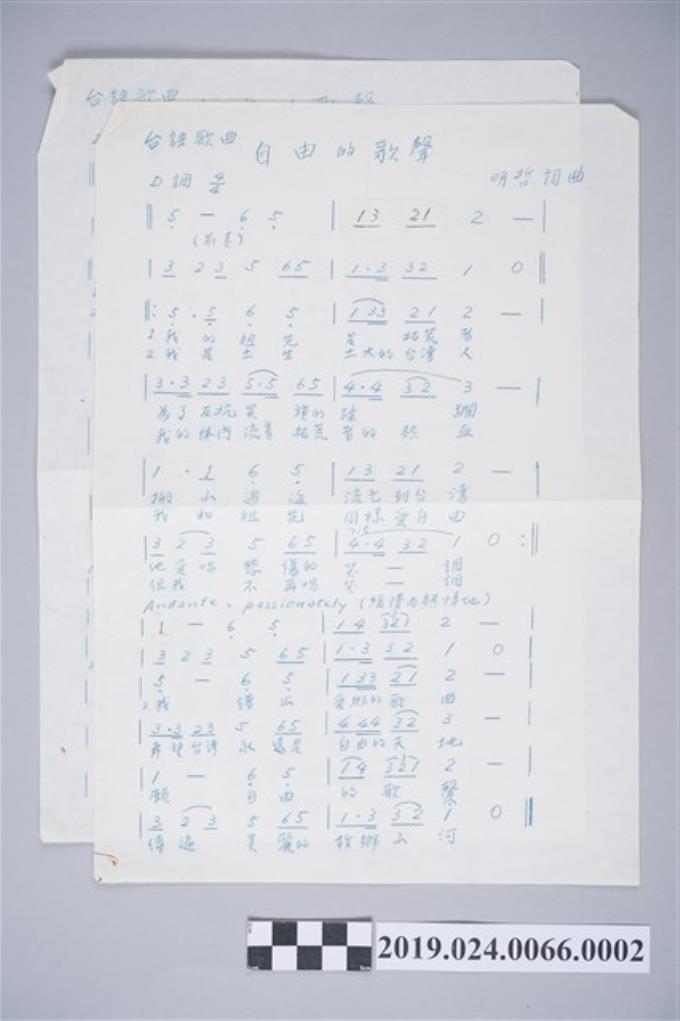 台語歌曲
台語歌曲
自由的歌聲
D調 4/4
明哲 詞曲
‖ 5 — 6 5 | 13 21 2 — |
(前奏)
| 3 2 3 5 65 | 1·3 32 1 0 ‖
‖: 5 · 5 6 5 | 1 33 21 2 — |
1 我 的 祖 先 是 拓荒 者
2 我 是 土 生 土大的 台灣 人
| 3·3 23 5·5 65 | 4·4 32 3 — |
為了 反抗 異 族的
我的 体內 流著 拓荒 者的 熱 血
| 1 · 1 6 5 | 13 21 2 — |
搬 山 過 海 流亡 到台 灣
我 和 祖先 同樣 愛自由
| 3 2 3 5 65 | 4·4 32 1 0 :‖
他 愛 唱 悲 傷的 — 調
但我 不 再唱 — 調
Andante, passionately
| 1 — 6 5 | 14 321 2 — |
| 3 2 3 5 65 | 1·3 32 1 0 |
| 5 — 6 5 | 133 21 2 — |
3 我 譜 出 愛鄉的 歌 曲
| 3·3 23 5 65 | 4 44 32 3 — |
希望 台灣 永 遠是 自由的 天 地
| 1 — 6 5 | 14 321 2 — |
願 自 由 的 歌 聲
| 3 2 3 5 65 | 1·3 32 1 0 ‖
傳 遍 美 麗的 故鄉 山 河
2019.024.0066.0002